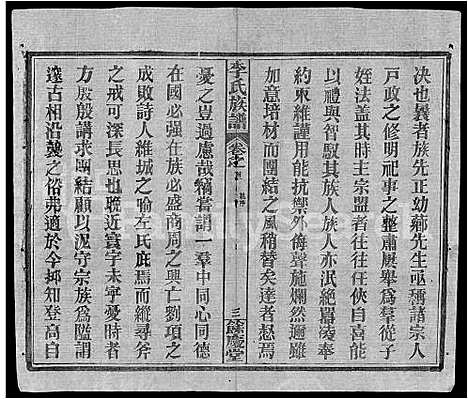 決也曩者族先正幼薌先生亟稱諸宗人
戶政之修明祀事之整肅屢舉爲羣從子
姪法蓋其時主宗盟者往往任俠自喜奉
以禮與智馭其族人族人亦泯絕譸凌奉
約束維謹用能抗禦外侮聲施爛然邇雖
加意培材而團結之風稍替矣達者惄焉
李氏族譜
卷七
三
餘慶堂
憂之豈過慮哉犢嘗謂一羣中同心同德
在國必強在族必盛商周之興亡劉項之
成敗詩人維城之喻左氏庇焉而縱尋斧
之戒可深長思也聯近寰宇未寧憂時者
方殷殷講求團結顧以泥守宗族爲隘謂
遠古相沿襲之俗弗適於今抑知登高自